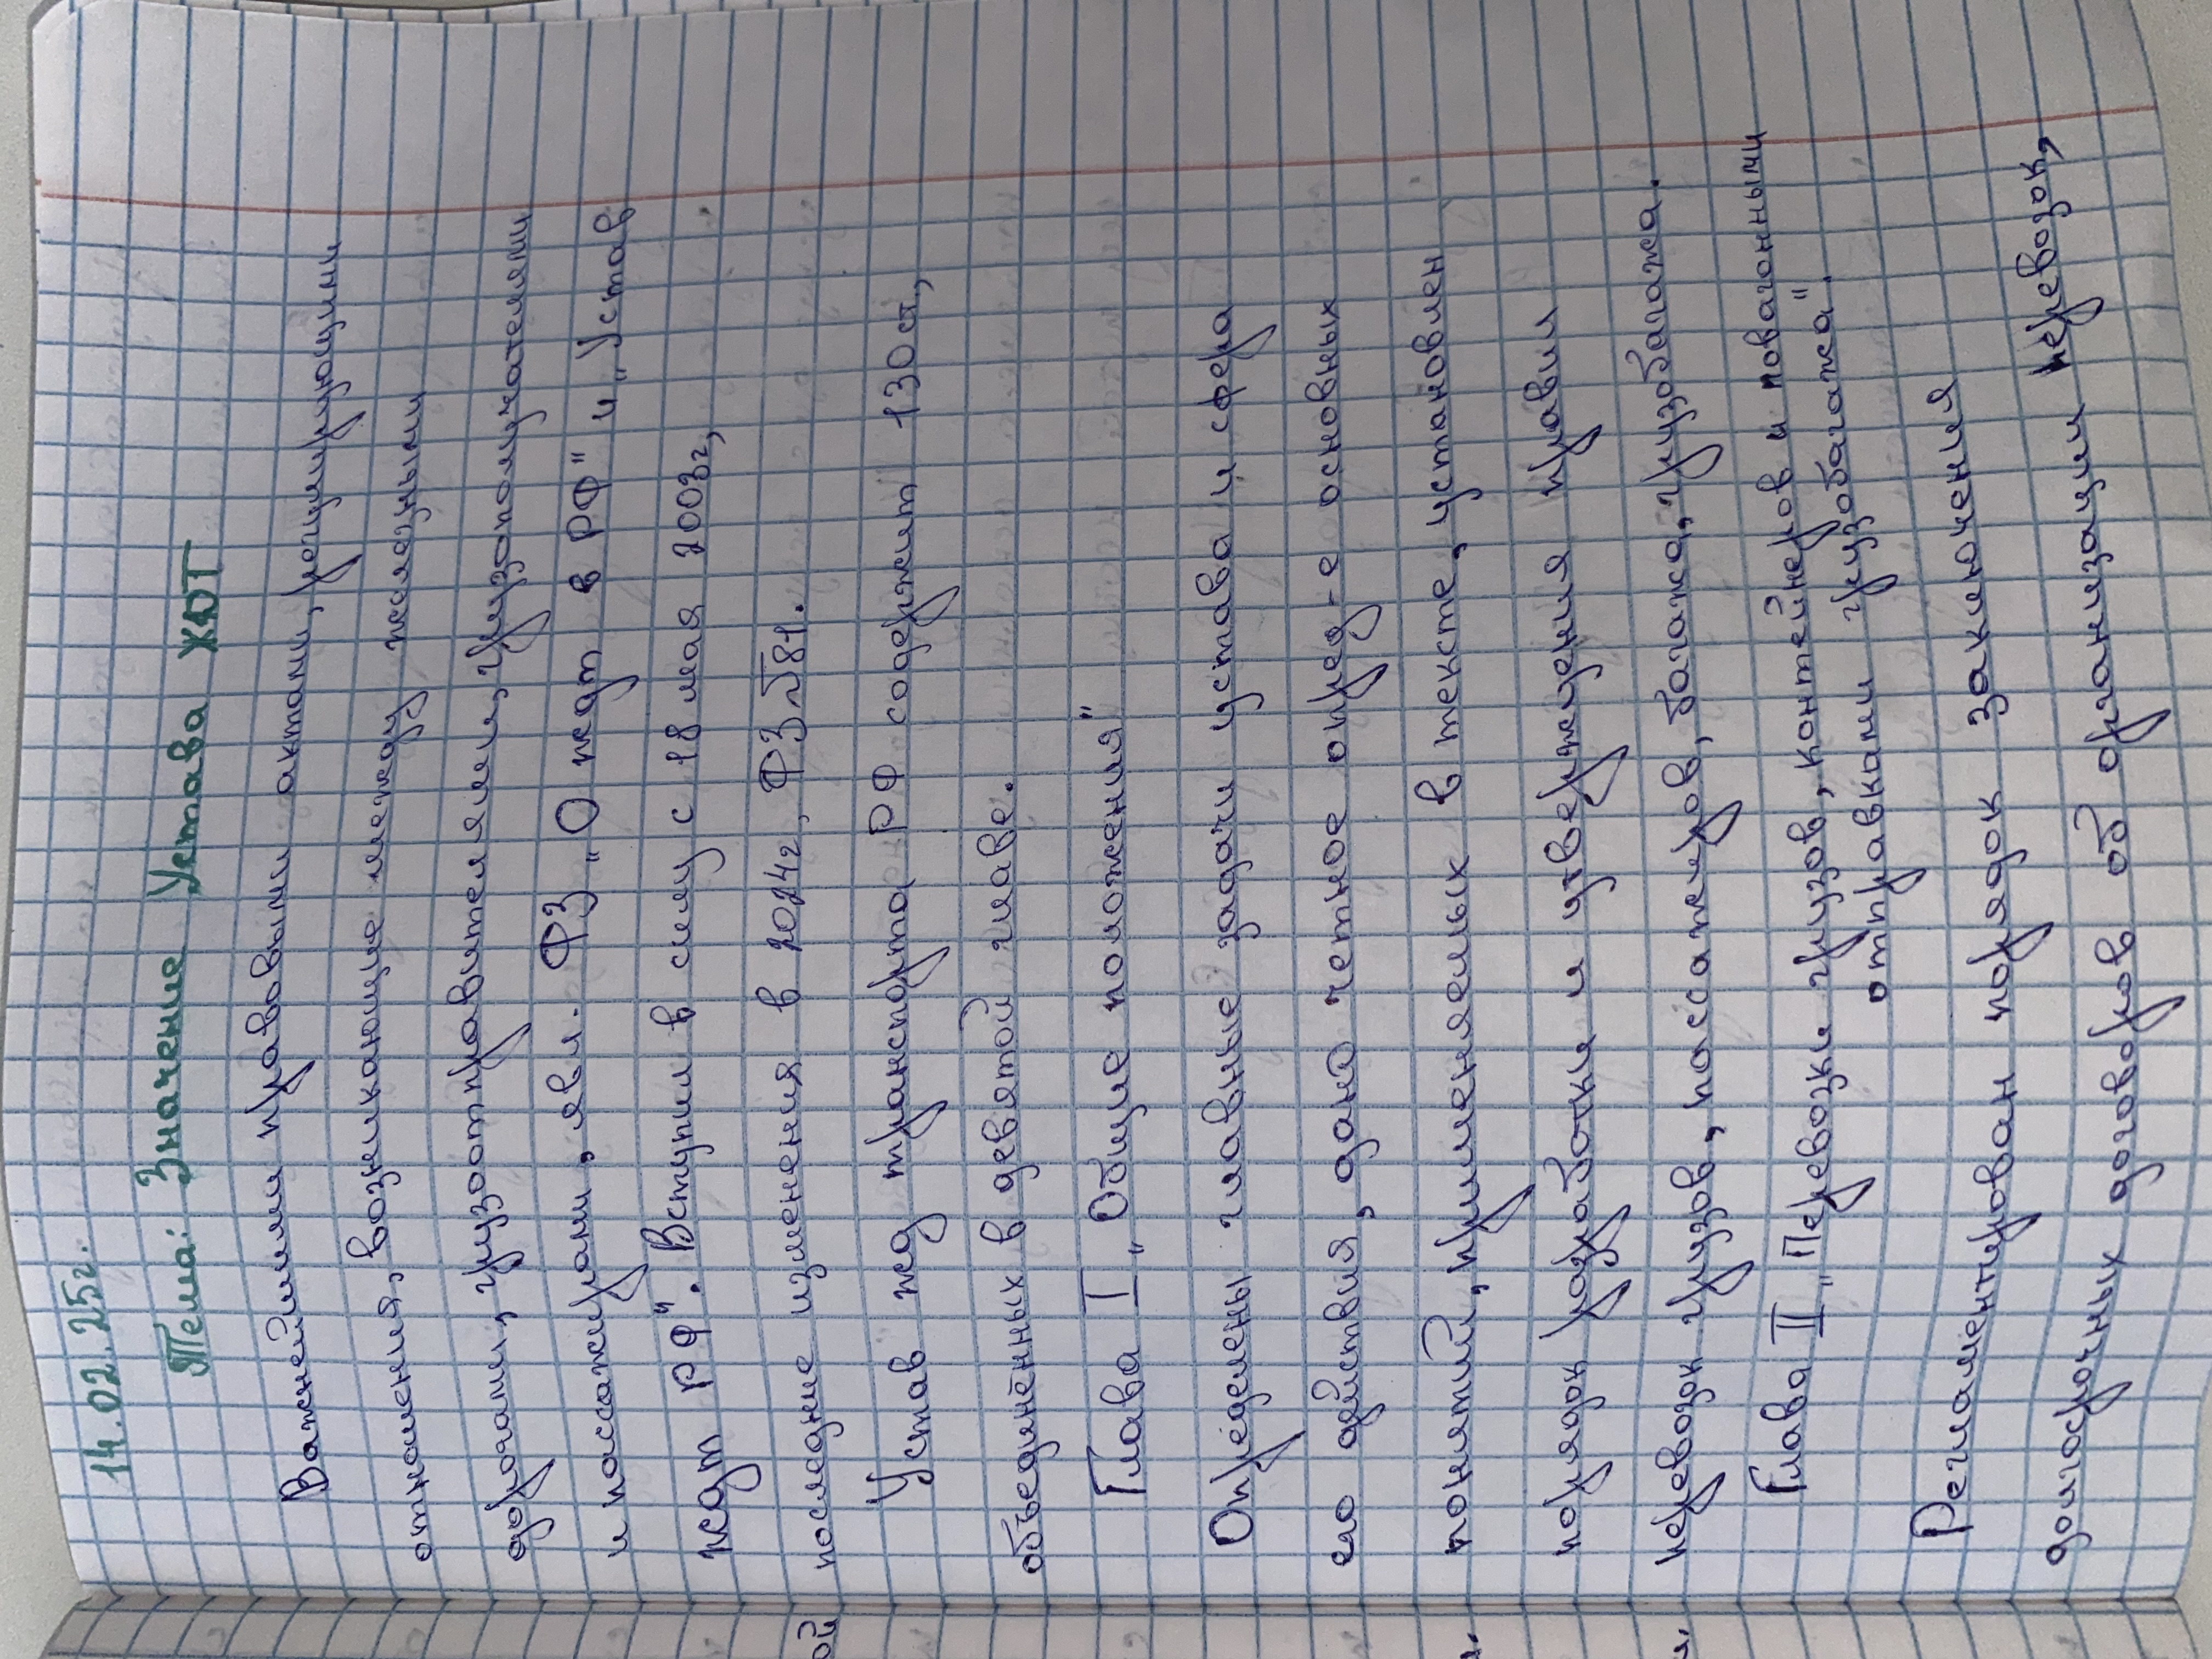 14.02.25г.
Тема: Значение Устава ЖДТ
Важнейшими правовыми актами, регулирующими
отношения, возникающие между железными
дорогами, грузоотправителями, грузополучателями
и пассажирами, явл. ФЗ „О ждт в РФ" и „Устав
ждт РФ". Вступил в силу с 18 мая 2003г,
последние изменения в 2024г, ФЗ №81.
Устав жд транспорта РФ содержит 130 ст,
объединённых в девятой главе.
Глава I „Общие положения"
Определены главные задачи устава и сфера
его действия, дано четное опред-е основных
понятий, применяемых в тексте, установлен
порядок разработки и утверждения правил
перевозок грузов, пассажиров, багажа, грузобагажа.
Глава II „Перевозки грузов, контейнеров и повагонными
отправками грузобагажа".
Регламентирован порядок заключения
долгосрочных договоров об организации перевозок,
ой